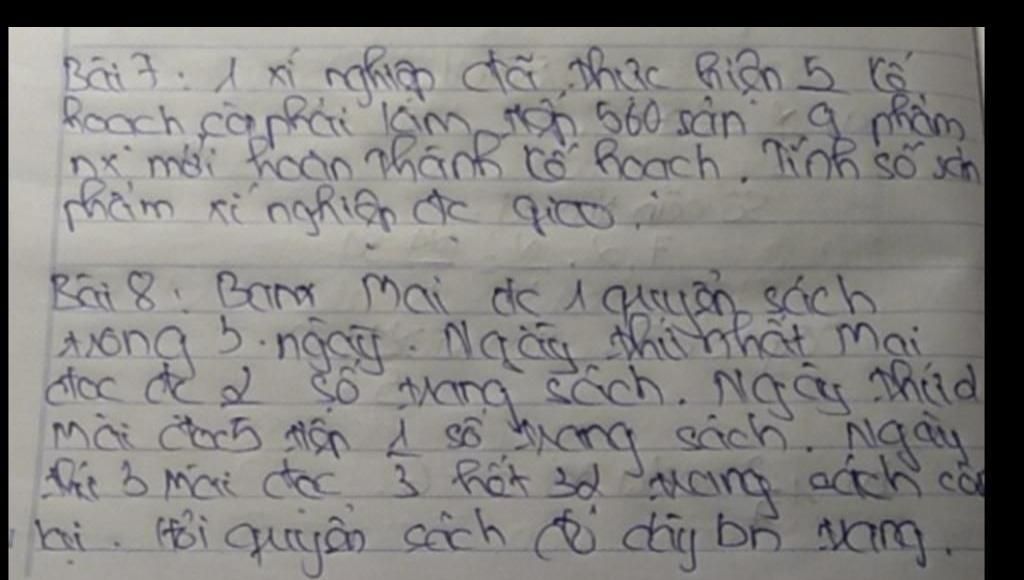 Bài 7: 1 xí nghiệp đã thực hiện 5 kế
hoạch, còn phải làm tiếp 560 sản 9 phẩm
nx mới hoàn thành kế hoạch. Tính số sản
phẩm xí nghiệp đc giao.
Bài 8: Bạn Mai đc 1 quyển sách
trong 3 ngày. Ngày thứ nhất Mai
đọc đc 2 số trang sách. Ngày thứ 2
Mai đọc 5 tiếp 1 số trang sách. Ngày
thứ 3 Mai đọc 3 hết 32 trang sách còn
lại. Hỏi quyển sách đó dày bn trang.